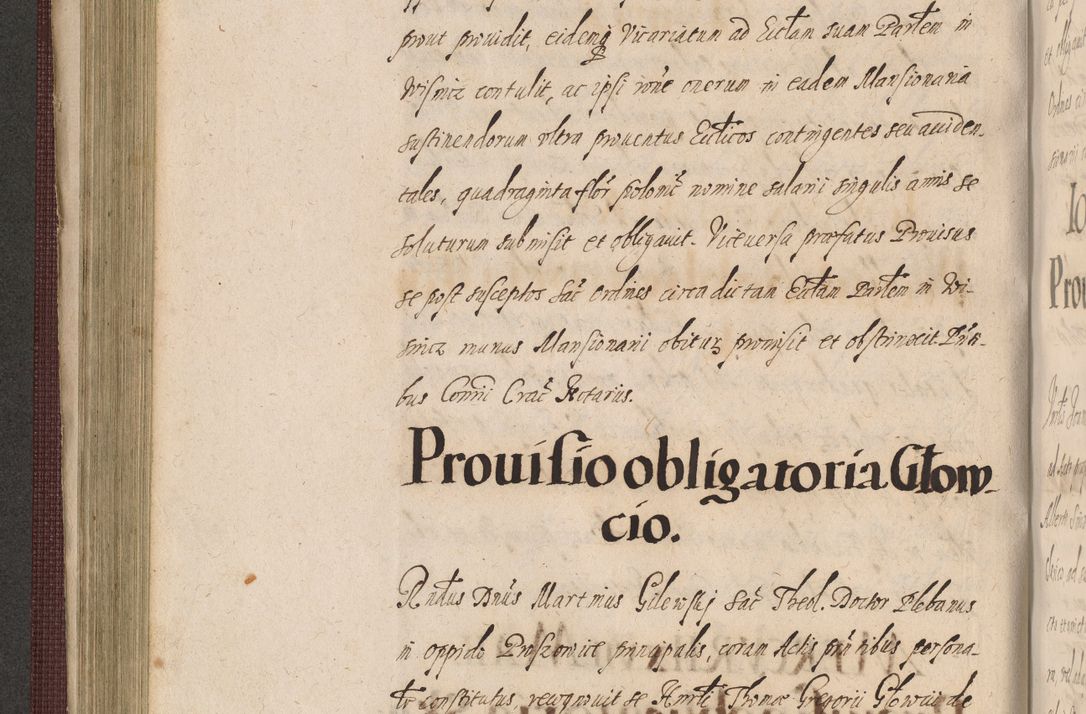 prout providit, eidemq Vicariatum ad Ecclam suam Parlem in
Wisnicz contulit, ac ipsi rone onerum in eadem Mansionaria
sustinendorum ultra prouentus Ecclicos contingentes seu acciden-
tales, quadraginta flor polonic nomine salarii singulis annis se
soluturum submisit et obligauit. Viceuersa præfatus Prouisus
se post susceptos sac ordines circa dictam Ecclam Parlem in Wi-
snicz munus Mansionarii obiturum promisit et obstrinxit Prñti-
bus Connii Crac Notariis.
Prouisio obligatoria Głow-
cio.
Rndus Dnus Martinus Gilewskj Sac Theol. Doctor Plebanus
in oppido Proszowice principalis, coram Actis prñtibus persona-
lr constitutus, recognouit se Honrti Thomæ Gregorii Głowcii de